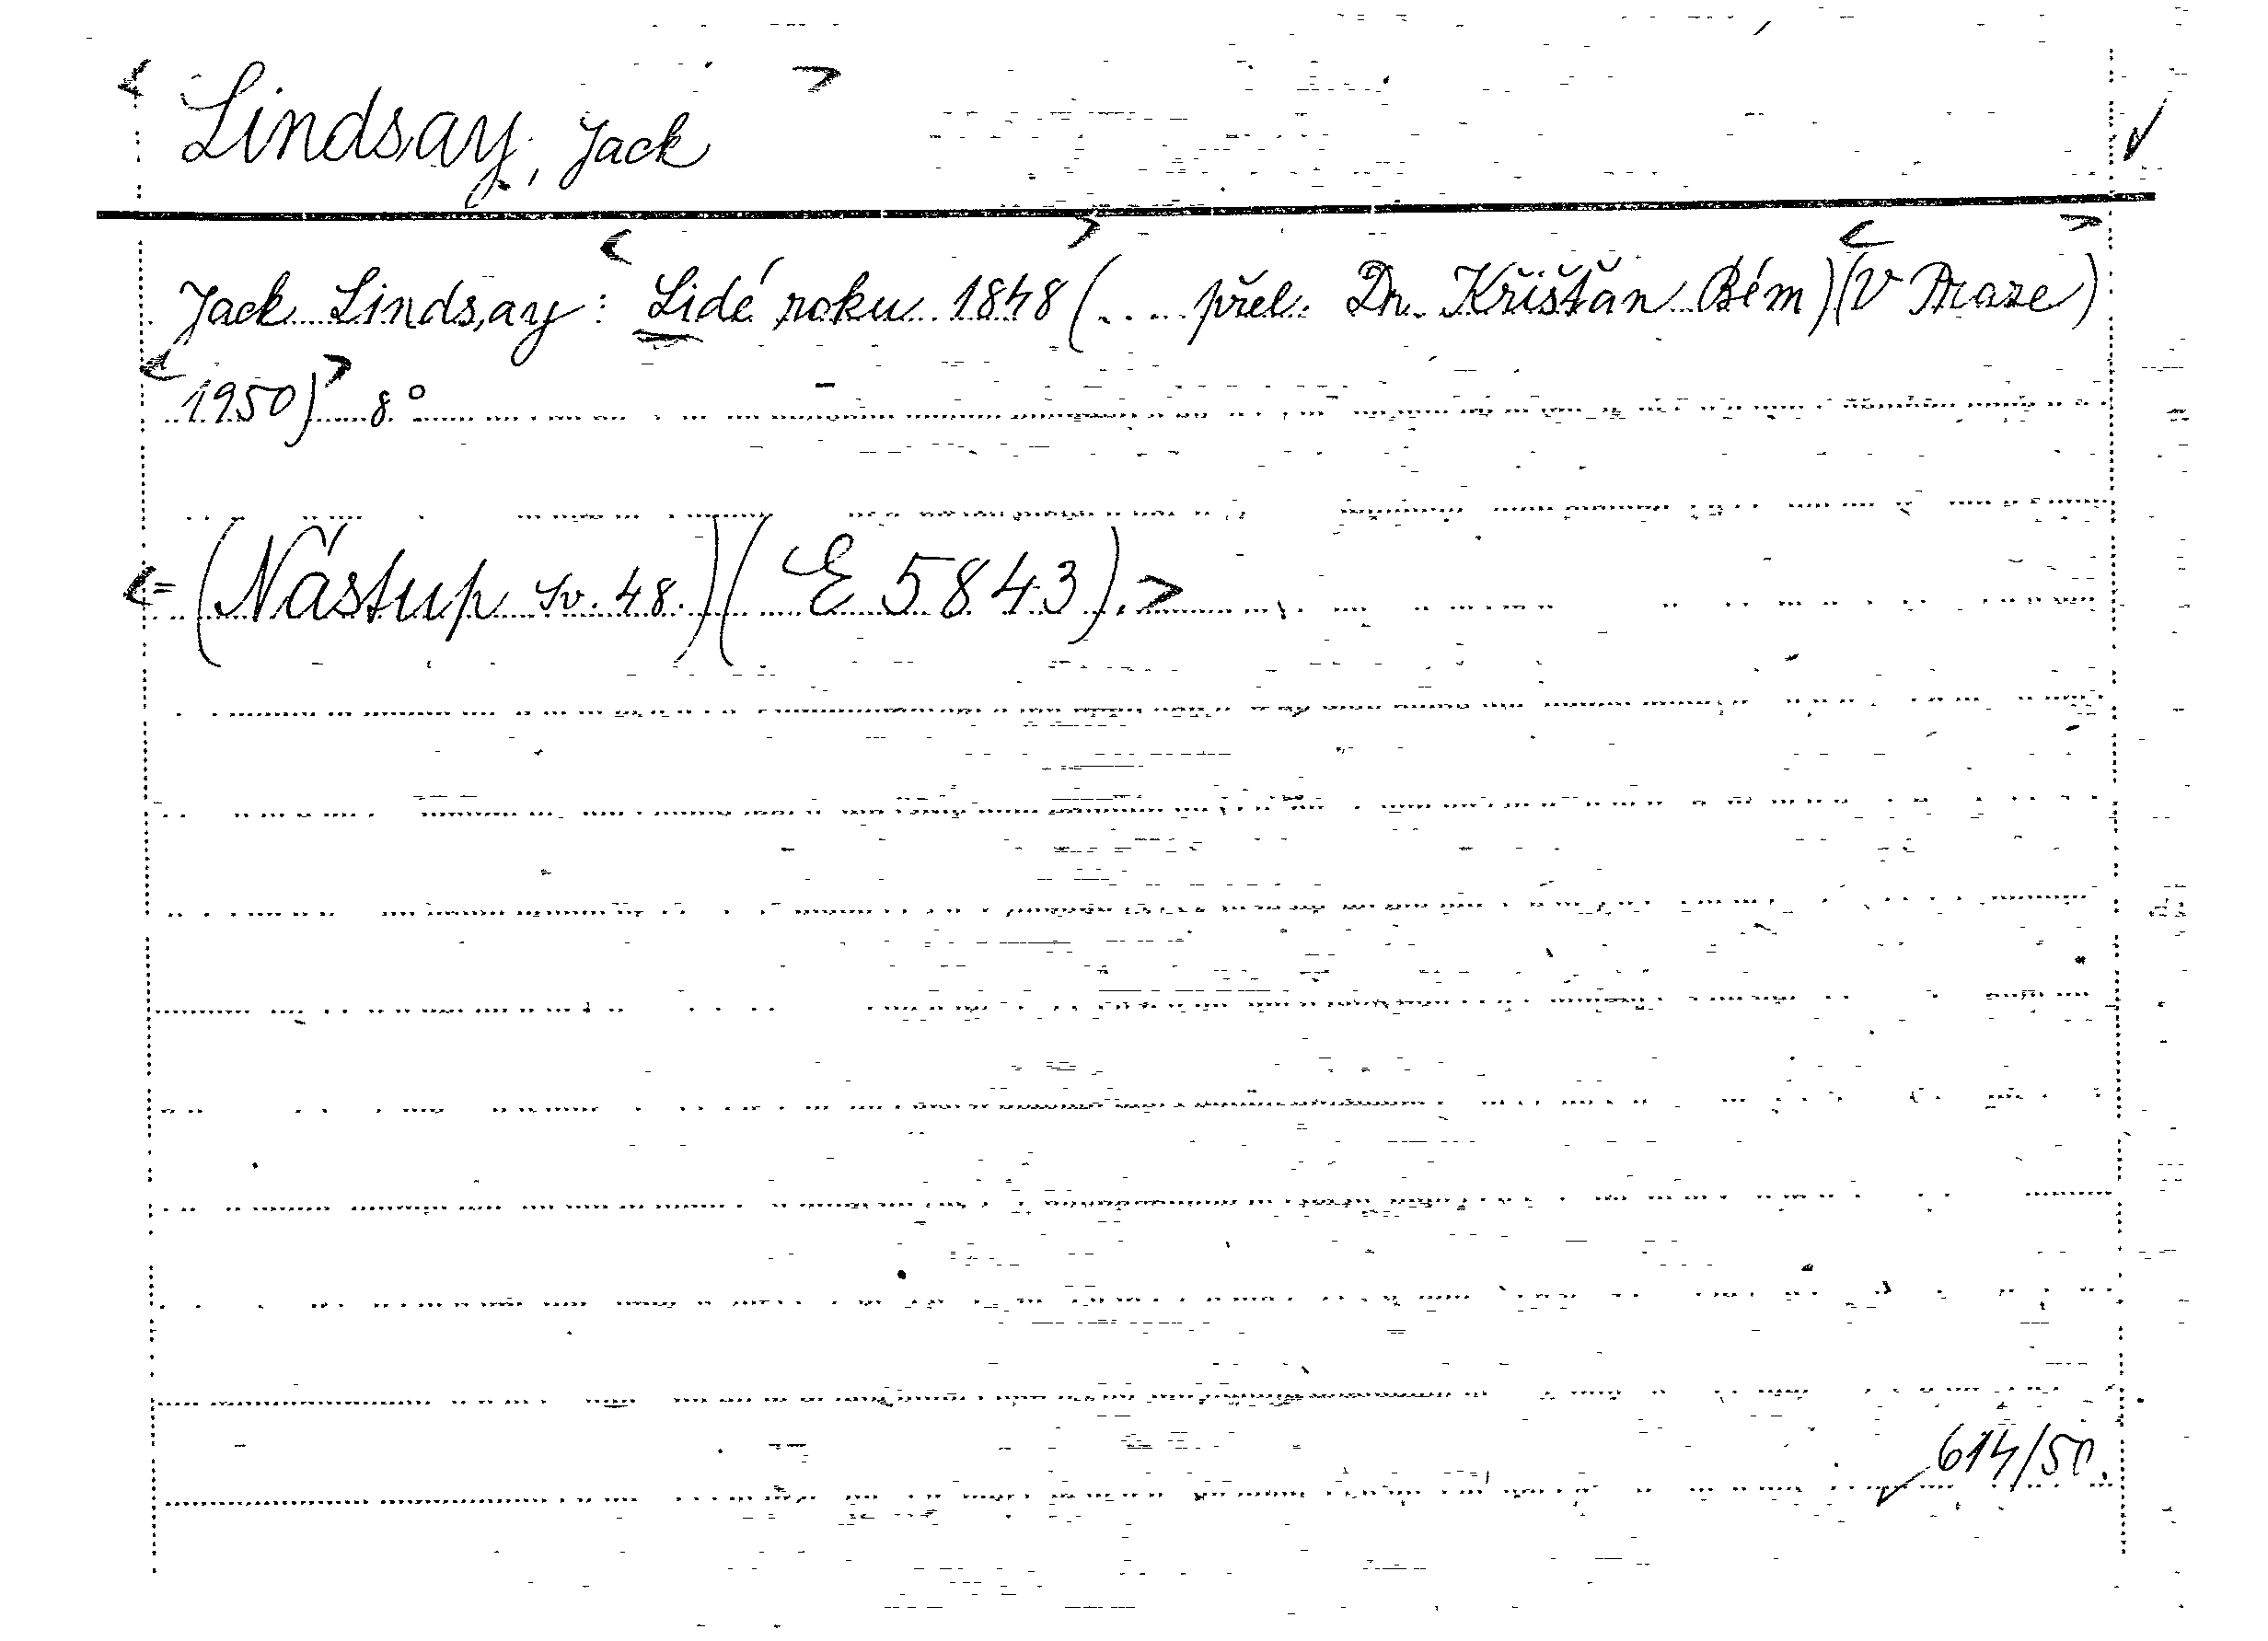 < Lindsay, Jack > ✓
Jack Lindsay: < Lidé roku 1848 > (.... přel. Dr. Křišťan Bém) < (V Praze) >
< 1950) > 8°
< = (Nástup sv. 48.) (E 5843). >
✓ 614/50.